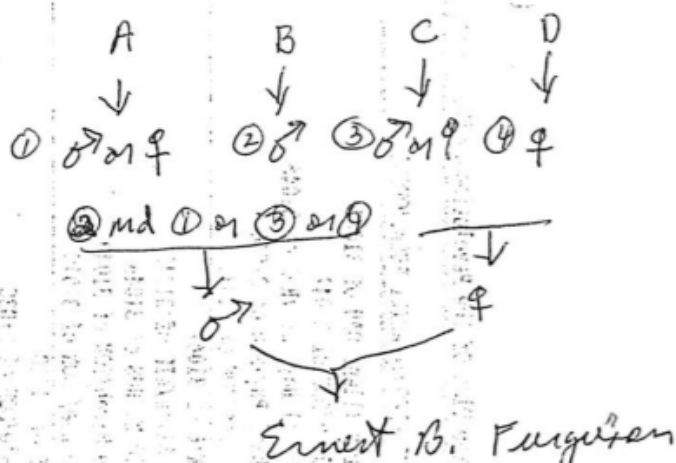 A B C D
① ♂ or ♀ ② ♂ ③ ♂ or ♀ ④ ♀
② md ① or ③ or ④
♂ ♀
Ernest B. Furguson